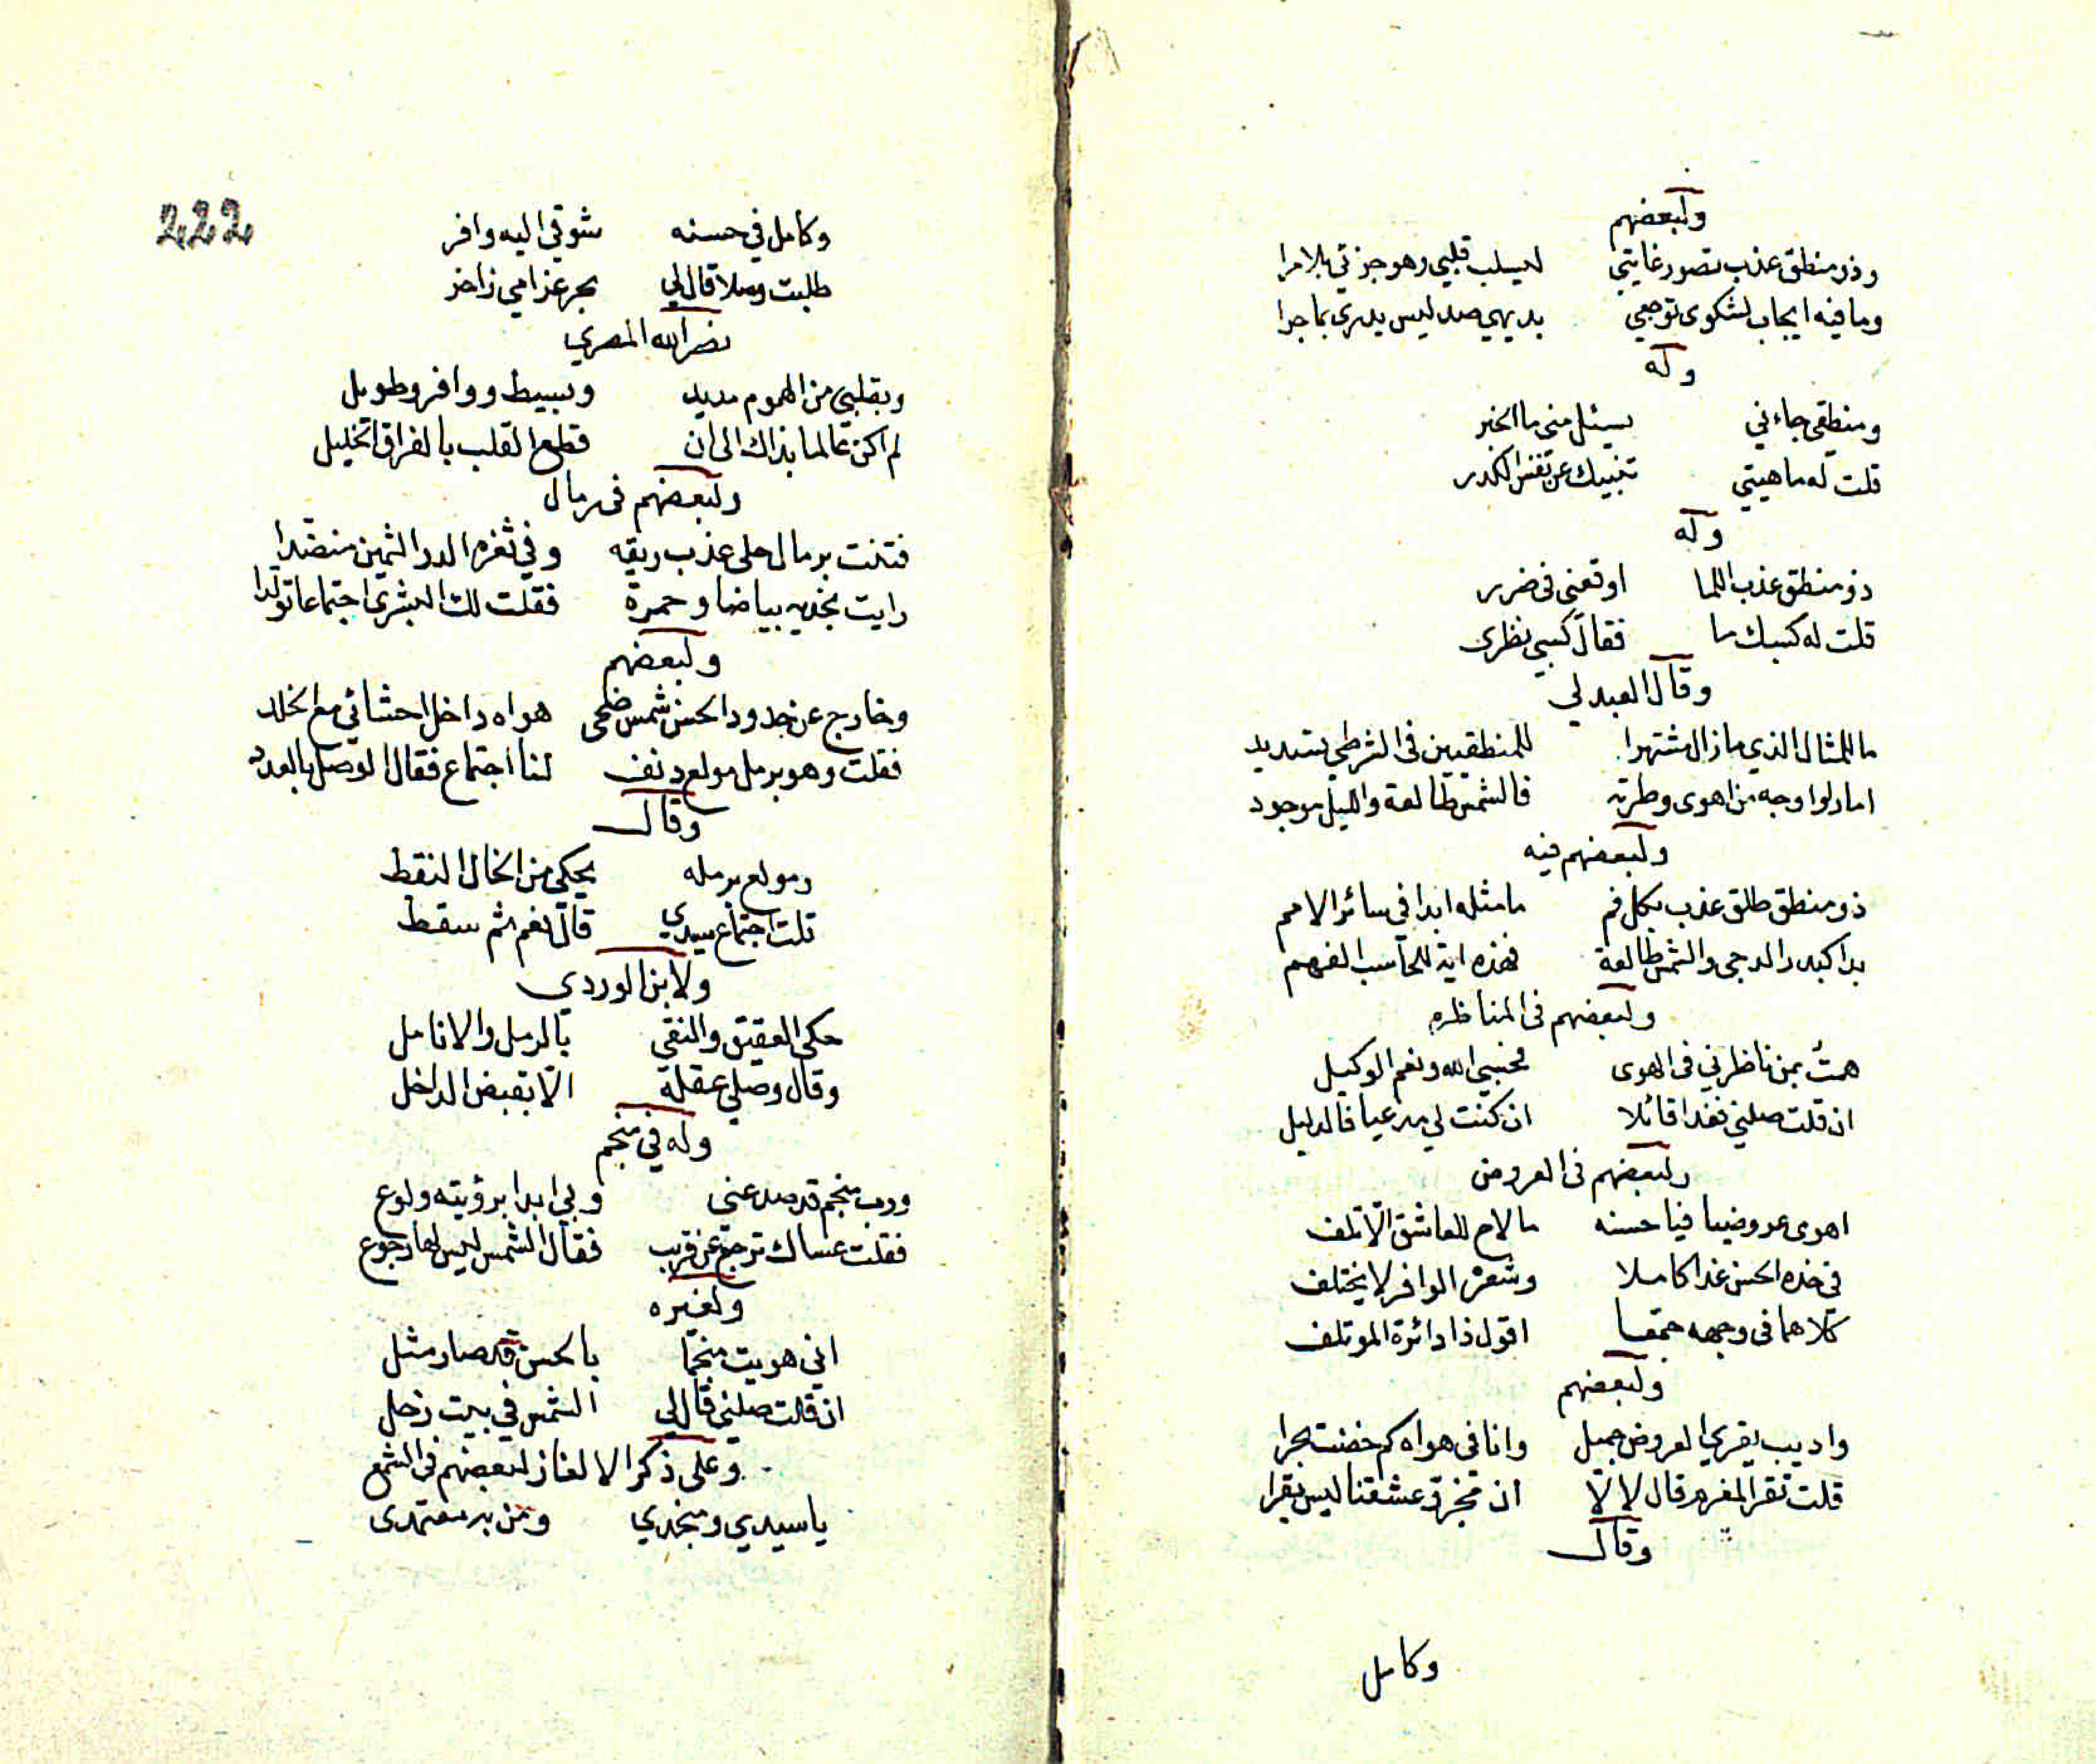 ولبعضهم
وذو منطق عذب تصور غايتي ليسلب قلبي وهو جزئي بلا مرا
وما فيه ايجاب لشكوى توجعي بديهي صد ليس يدرى بما جرا
وله
ومنطقي جاءني يسئل مني ما الخبر
قلت له ماهيتي تنبيك عن الكدر
وله
ذو منطق عذب اللما اوقعني في ضرر
قلت له كسبك ما فقال كسبي نظرى
وقال العبدلي
ما للمثال الذي ما زال مشتهرا للمنطقيين في الشرطي تسديد
اما دلوا وجه من اهوى وطرته فالشمس طالعة والليل موجود
ولبعضهم فيه
ذو منطق طلق عذب بكل فم ما مثله ابدا في سائر الامم
بدا كبدر الدجى والشمس طالعة فهذه اية للحاسب الفهم
ولبعضهم في المناظره
همت بمن ناظرني في الهوى فحسبي الله ونعم الوكيل
ان قلت صلني فغدا قائلا ان كنت لي مدعيا فالدليل
ولبعضهم في العروض
اهوى عروضيا فيا حسنه ما لاح للعاشق الا تلف
في خده الحسن غدا كاملا وشعره الوافر لا يختلف
كلاهما في وجهه جمعا اقول ذا دائرة الموتلف
ولبعضهم
واديب يقري العروض جميل وانا في هواه كم خضت بحرا
قلت تقرا المغرم قال لا لا ان في عشقنا ليس يقرا
وقال
وكامل
222
وكامل في حسنه شوقي اليه وافر
طلبت وصلا قال لي بحر غرامي زاخر
نصر الله المصري
وبقلبي من الهموم مديد وبسيط ووافر وطويل
لم اكن عالما بذاك الى ان قطع القلب بالفراق الخليل
ولبعضهم في رمال
فتنت برمال حلى عذب ريقه وفي ثغره الدر الثمين منضدا
رايت بخديه بياضا وحمرة فقلت لك البشرى اجتماعا تولدا
ولبعضهم
وخارج عن حدود الحسن شمس ضحى هواه داخل احشائي مع الخلد
فقلت وهو برمل مولع دنف لنا اجتماع فقال الوصل بالعدد
وقال
ومولع برمله يحكي من الخال النقط
قلت اجتماع سيدي قال نعم ثم سقط
ولابن الوردي
حكى العقيق والنقي بالرمل والانامل
وقال وصلي عقلة الا بقبض الداخل
وله في منجم
ورب منجم قد صد عني وبي ابدا برؤيته ولوع
فقلت عساك ترجع عن قريب فقال الشمس ليس لها رجوع
ولغيره
اني هويت منجما بالحسن قد صار مثل
ان قلت صلني قال لي الشمس في بيت زحل
وعلى ذكر الالغاز لبعضهم في الشمع
يا سيدي ومنجدي ومن به معتمدى